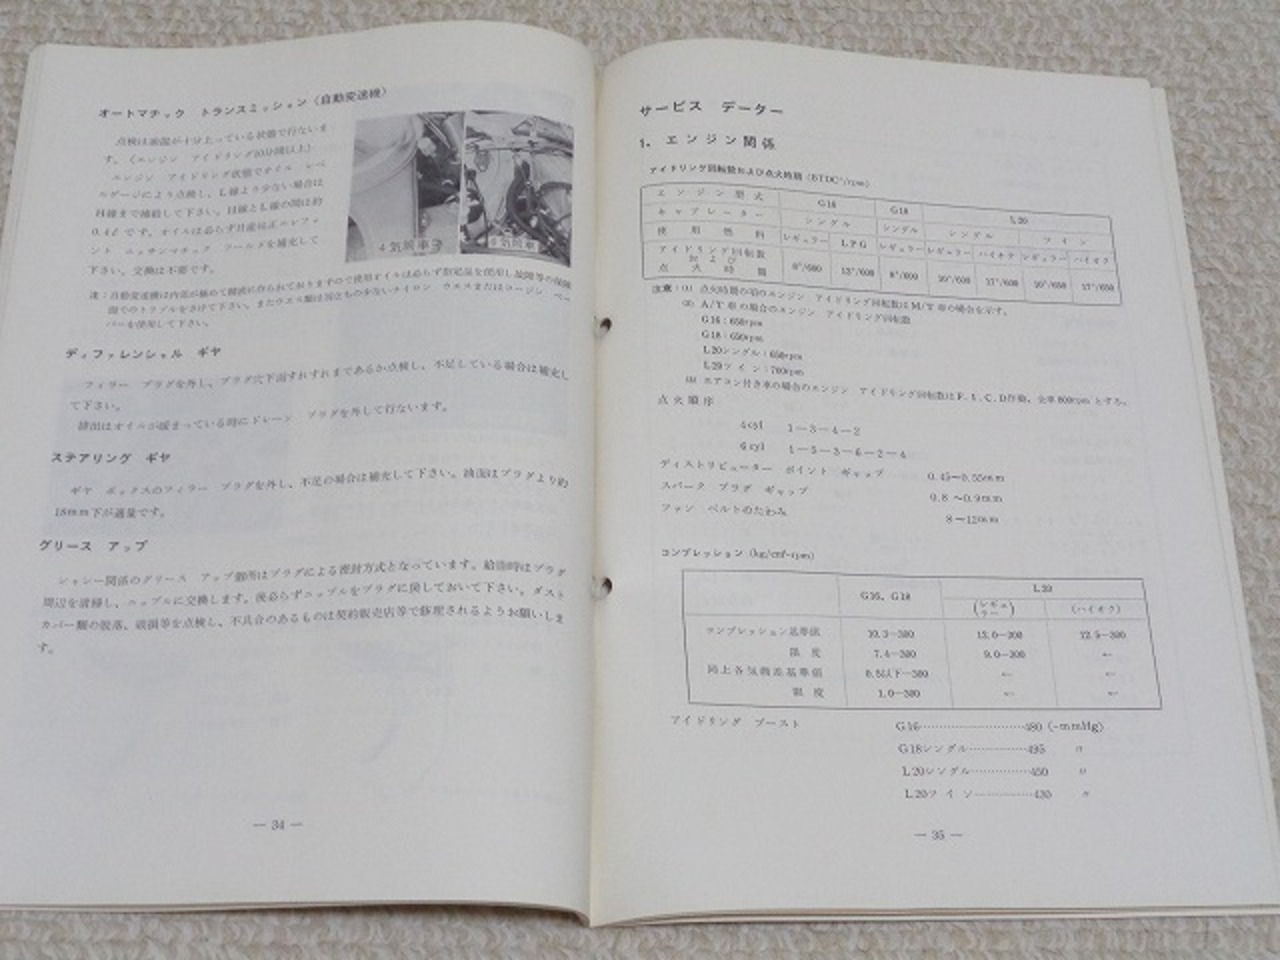 オートマチック トランスミッション（自動変速機）
点検は油温が十分上っている状態で行ないま
す。（エンジン アイドリング10分間以上）
エンジン アイドリング状態でオイル レベ
ルゲージにより点検し、L線より少ない場合は
H線まで補給して下さい。H線とL線の間は約
0.4ℓです。オイルは必らず日産純正エレフォ
ント ニッサンマチック フールドを補充して
下さい。交換は不要です。
4気筒車
6気筒車
注：自動変速機は内部が極めて精密に作られておりますので使用オイルは必らず指定品を使用し故障等の保障
間でのトラブルをさけて下さい。またウエス類は羽ともの少ないナイロン ウエスまたはコージン ペー
パーを使用して下さい。
ディファレンシャル ギヤ
フィラー プラグを外し、プラグ穴下面すれすれまであるか点検し、不足している場合は補充し
て下さい。
排出はオイルが暖まっている時にドレーン プラグを外して行ないます。
ステアリング ギヤ
ギヤ ボックスのフィラー プラグを外し、不足の場合は補充して下さい。油面はプラグより約
18mm下が適量です。
グリース アップ
シャシー関係のグリース アップ個所はプラグによる密封方式となっています。給油時はプラグ
周辺を清掃し、ニップルに交換します。後必らずニップルをプラグに戻しておいて下さい。ダスト
カバー類の脱落、破損等を点検し、不具合のあるものは契約販売店等で修理されるようお願いしま
す。
— 34 —
サービス データー
1. エンジン関係
アイドリング回転数および点火時期（BTDC°/rpm）
エンジン型式 G16 G18 L20
キャブレーター シングル シングル シングル ツイン
使用燃料 レギュラー LPG レギュラー レギュラー ハイオク レギュラー ハイオク
アイドリング回転数
および
点火時期 8°/600 13°/600 8°/600 10°/600 17°/600 10°/650 17°/650
注意：(1) 点火時期の項のエンジン アイドリング回転数はM/T車の場合を示す。
(2) A/T車の場合のエンジン アイドリング回転数
G16：650rpm
G18：650rpm
L20シングル：650rpm
L20ツイン：700rpm
(3) エアコン付き車の場合のエンジン アイドリング回転数はF.I.C.D作動、全車800rpmとする。
点火順序
4cyl 1—3—4—2
6cyl 1—5—3—6—2—4
ディストリビューター ポイント ギャップ 0.45～0.55mm
スパーク プラグ ギャップ 0.8～0.9mm
ファン ベルトのたわみ 8～12mm
コンプレッション（kg/cm²-rpm）
G16, G18 L20
（レギュラー） （ハイオク）
コンプレッション基準値 10.3—300 12.0—300 12.5—300
限度 7.4—300 9.0—300 ←
同上各気筒差基準値 0.5以下—300 ← ←
限度 1.0—300 ← ←
アイドリング ブースト G16……………………480（-mmHg）
G18シングル……………495 〃
L20シングル……………450 〃
L20ツイン……………430 〃
— 35 —